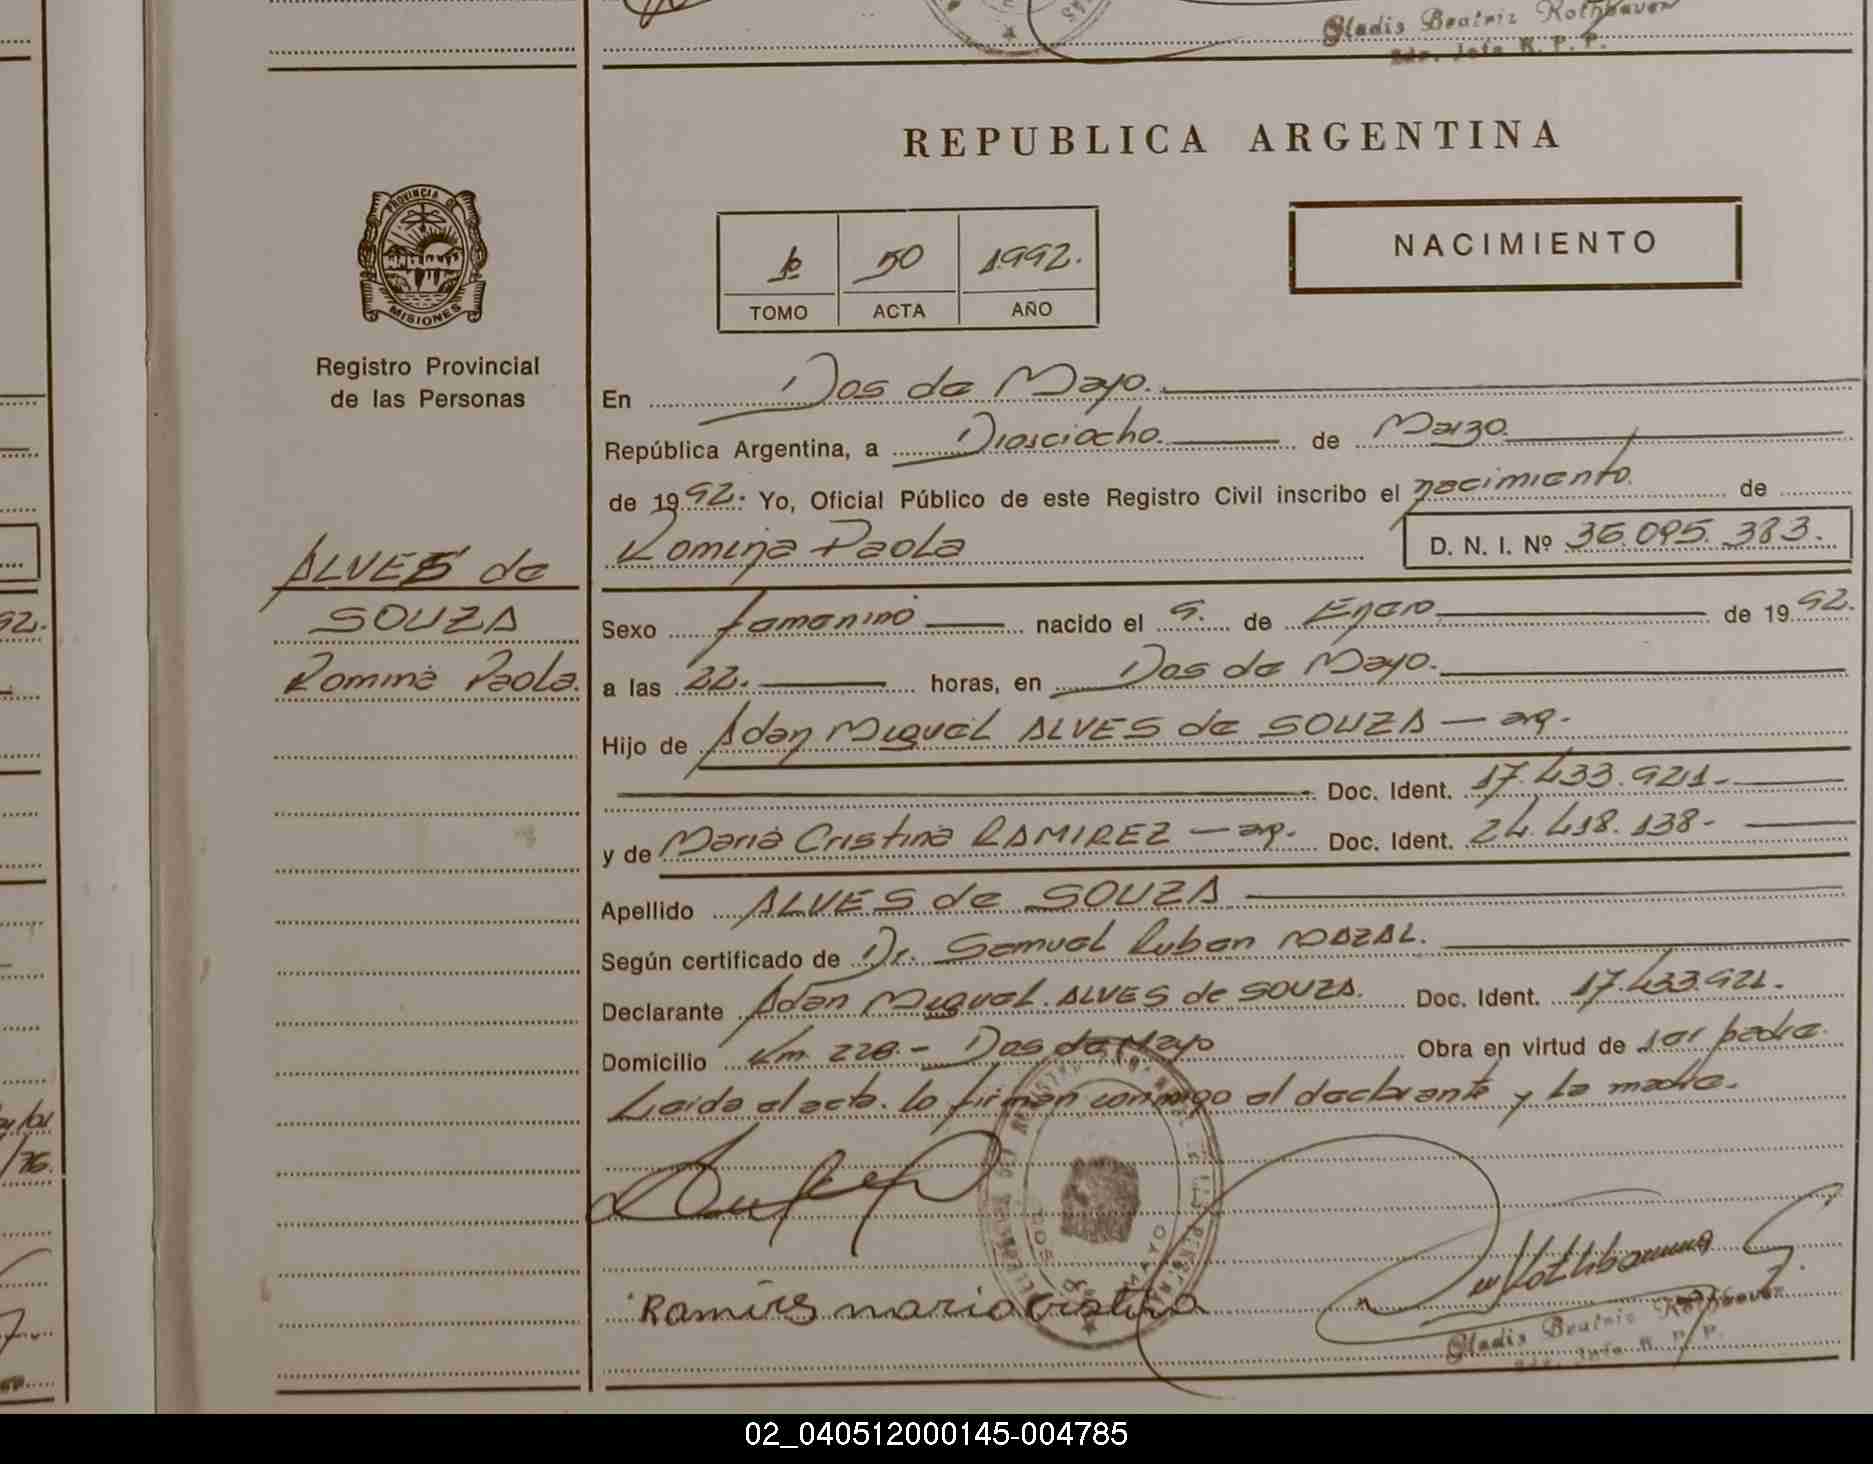 Gladis Beatriz Rothbauer
Sdr. Jefa R. P. P.
REPUBLICA ARGENTINA
PROVINCIA DE
MISIONES
Registro Provincial
de las Personas
NACIMIENTO
1º 50 1992.
TOMO ACTA AÑO
En Dos de Mayo.
República Argentina, a Diesciocho. de Marzo
de 1992. Yo, Oficial Público de este Registro Civil inscribo el nacimiento. de
Romina Paola D. N. I. Nº 36.095.383.
ALVES de
SOUZA
Romina Paola.
Sexo femenino nacido el 9. de Enero de 1992.
a las 22. horas, en Dos de Mayo.
Hijo de Adan Miguel ALVES de SOUZA — arg.
Doc. Ident. 17.433.921.
y de Maria Cristina RAMIREZ — arg. Doc. Ident. 24.418.138-
Apellido ALVES de SOUZA
Según certificado de Dr. Samuel Ruben MAZAL.
Declarante Adan Miguel ALVES de SOUZA. Doc. Ident. 17.433.921.
Domicilio Km. 228.- Dos de Mayo Obra en virtud de ser padre.
Leida el acta. lo firman conmigo el declarante y la madre.
DOS DE MAYO
Ramires maria Cristina
Gladis Beatriz Rothbauer
Sdr. Jefa R. P. P.
92.
02_040512000145-004785